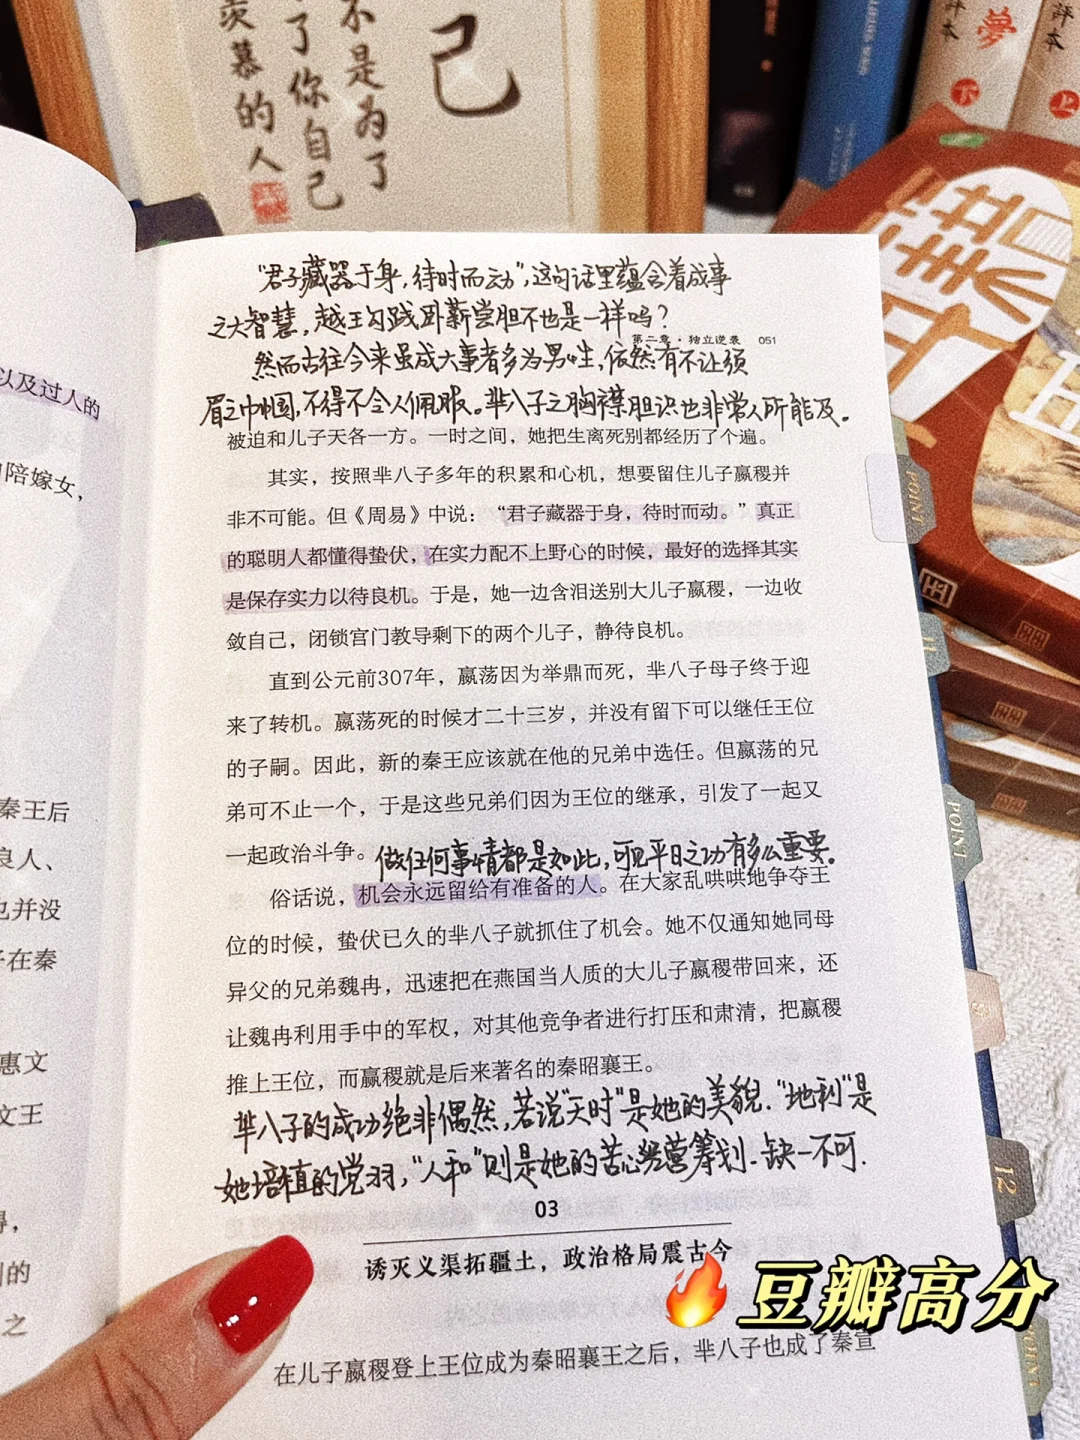 己
不是为了
了你自己
羡慕的人
夢
下
評本
上
評本
以及过人的
陪嫁女，
秦王后
良人、
也并没
子在秦
惠文
文王
得，
之
“君子藏器于身，待时而动”，这句话里蕴含着成事
之大智慧，越王勾践卧薪尝胆不也是一样吗？
第二章·独立逆袭 051
然而古往今来虽成大事者多为男性，依然有不让须
眉之巾帼，不得不令人佩服。芈八子之胸襟胆识也非常人所能及。
被迫和儿子天各一方。一时之间，她把生离死别都经历了个遍。
其实，按照芈八子多年的积累和心机，想要留住儿子嬴稷并
非不可能。但《周易》中说：“君子藏器于身，待时而动。”真正
的聪明人都懂得蛰伏，在实力配不上野心的时候，最好的选择其实
是保存实力以待良机。于是，她一边含泪送别大儿子嬴稷，一边收
敛自己，闭锁宫门教导剩下的两个儿子，静待良机。
直到公元前307年，嬴荡因为举鼎而死，芈八子母子终于迎
来了转机。嬴荡死的时候才二十三岁，并没有留下可以继任王位
的子嗣。因此，新的秦王应该就在他的兄弟中选任。但嬴荡的兄
弟可不止一个，于是这些兄弟们因为王位的继承，引发了一起又
一起政治斗争。
做任何事情都是如此，可见平日之功有多么重要。
俗话说，机会永远留给有准备的人。在大家乱哄哄地争夺王
位的时候，蛰伏已久的芈八子就抓住了机会。她不仅通知她同母
异父的兄弟魏冉，迅速把在燕国当人质的大儿子嬴稷带回来，还
让魏冉利用手中的军权，对其他竞争者进行打压和肃清，把嬴稷
推上王位，而嬴稷就是后来著名的秦昭襄王。
芈八子的成功绝非偶然，若说“天时”是她的美貌，“地利”是
她培植的党羽，“人和”则是她的苦心经营筹划，缺一不可.
03
诱灭义渠拓疆土，政治格局震古今
在儿子嬴稷登上王位成为秦昭襄王之后，芈八子也成了秦宣
POINT
11
POINT
12
POINT
豆瓣高分